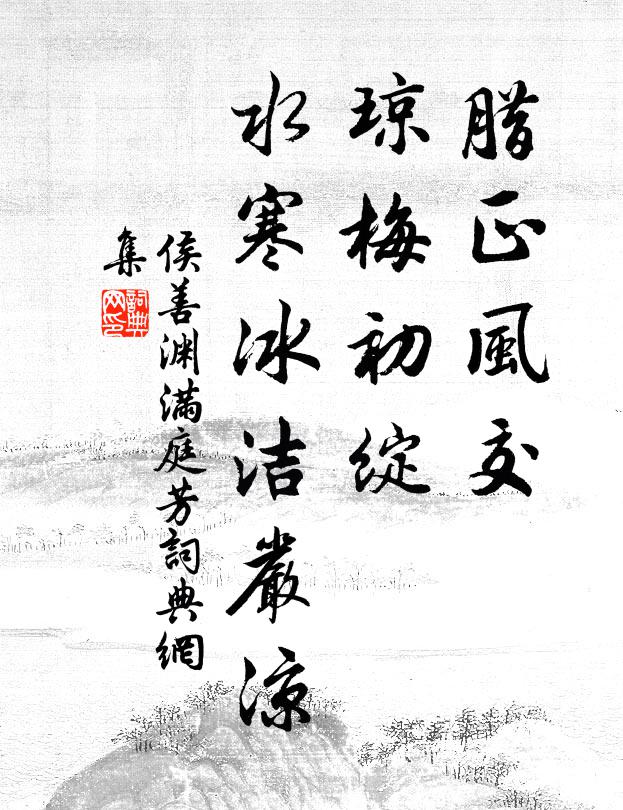 腊正風交
琼梅初綻
水寒冰洁嚴凉
侯善渊滿庭芳詞典網
集
詞典網印